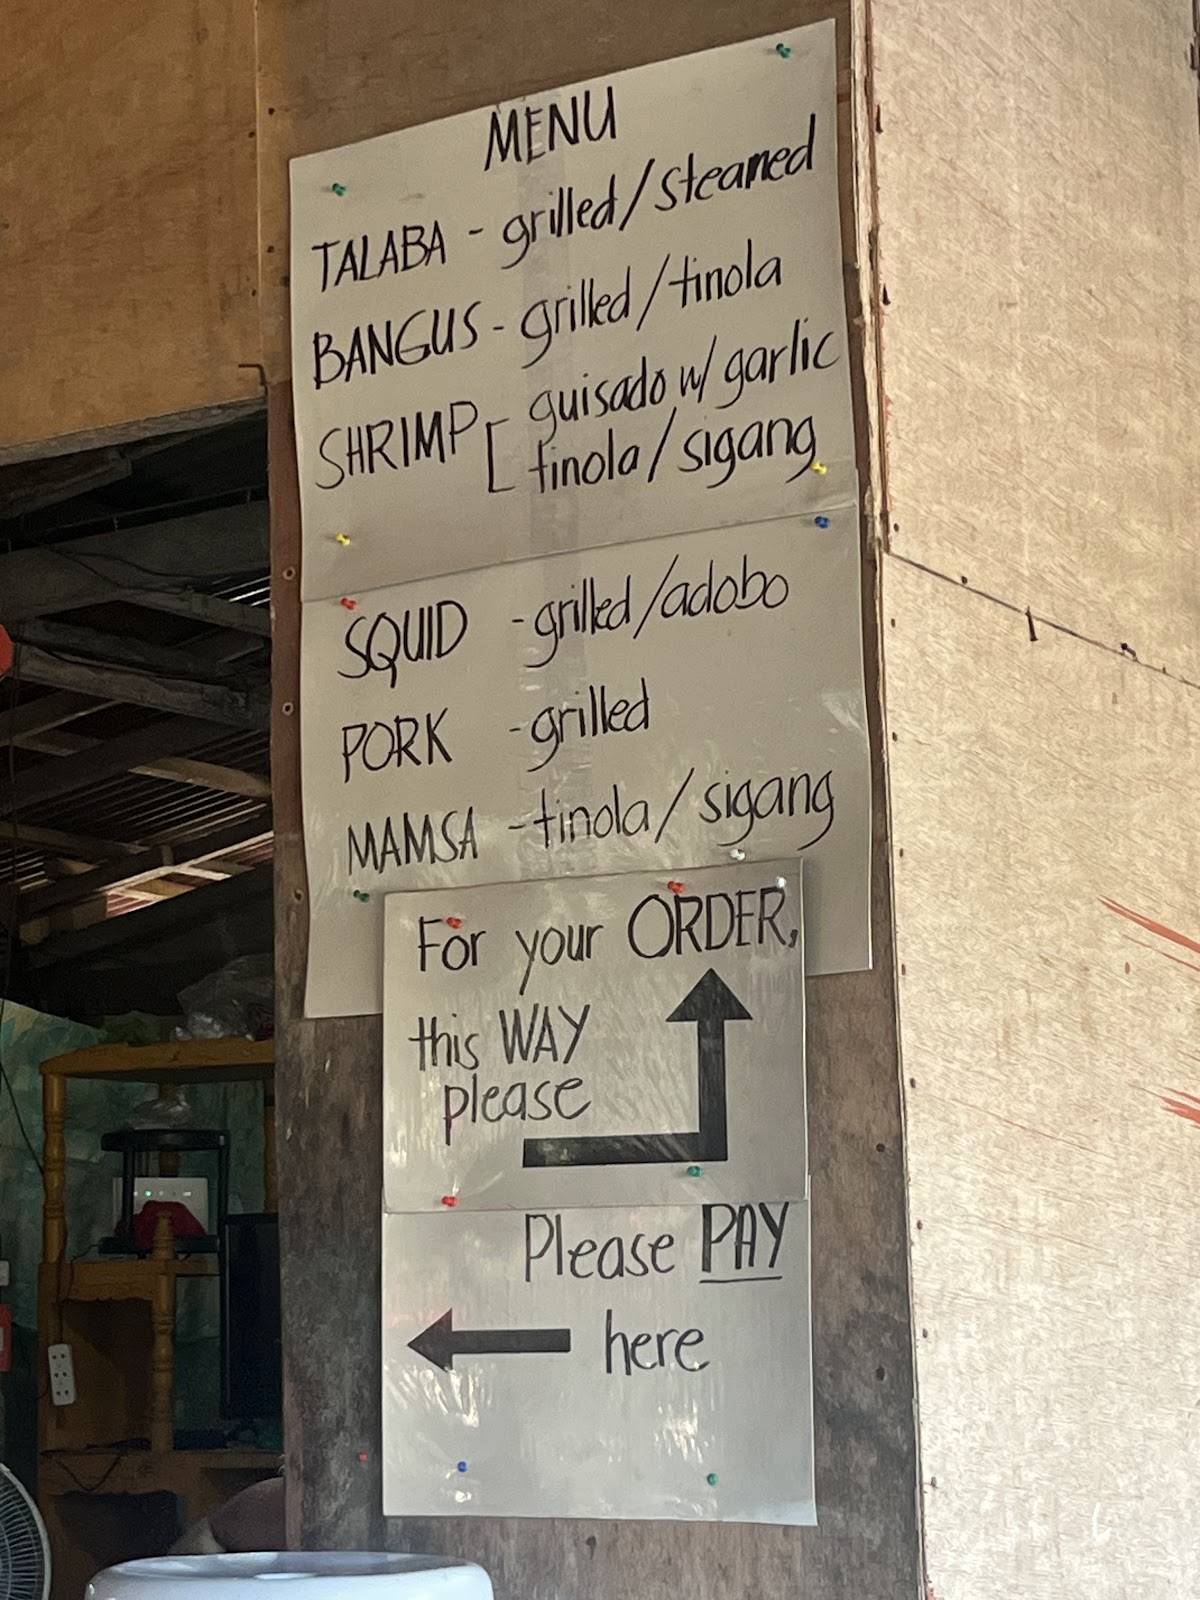 MENU
TALABA - grilled/steamed
BANGUS - grilled/tinola
SHRIMP - [ guisado w/ garlic
tinola/sigang
SQUID - grilled/adobo
PORK - grilled
MAMSA - tinola/sigang
For your ORDER,
this WAY
please
Please PAY
here